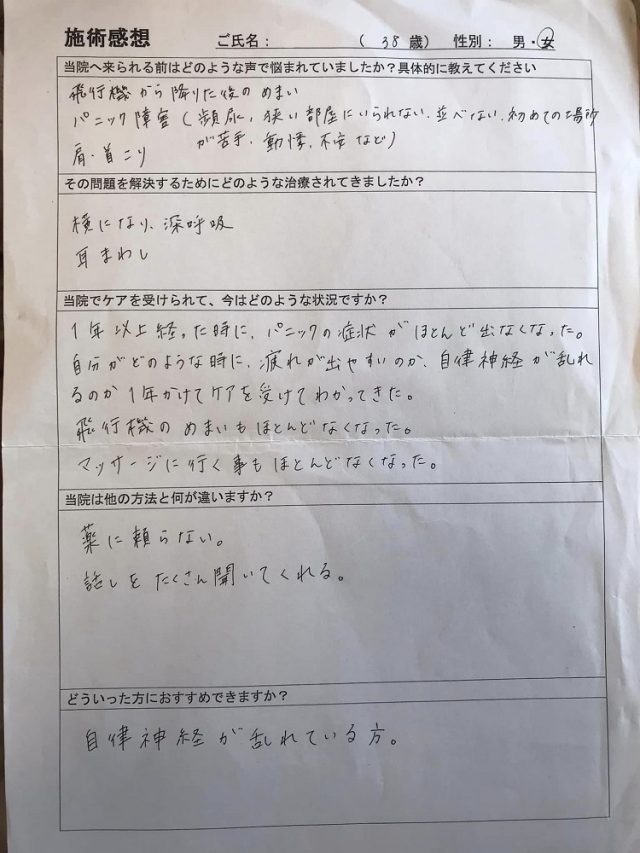 施術感想 ご氏名： （ 38 歳） 性別： 男・女
当院へ来られる前はどのような声で悩まれていましたか？具体的に教えてください
飛行機から降りた後のめまい
パニック障害（頻尿、狭い部屋にいられない、並べない、初めての場所
が苦手、動悸、不安など）
肩・首こり
その問題を解決するためにどのような治療されてきましたか？
横になり、深呼吸
耳まわし
当院でケアを受けられて、今はどのような状況ですか？
1年以上経った時に、パニックの症状がほとんど出なくなった。
自分がどのような時に、疲れが出やすいのか、自律神経が乱れ
るのか1年かけてケアを受けてわかってきた。
飛行機のめまいもほとんどなくなった。
マッサージに行く事もほとんどなくなった。
当院は他の方法と何が違いますか？
薬に頼らない。
話しをたくさん聞いてくれる。
どういった方におすすめできますか？
自律神経が乱れている方。